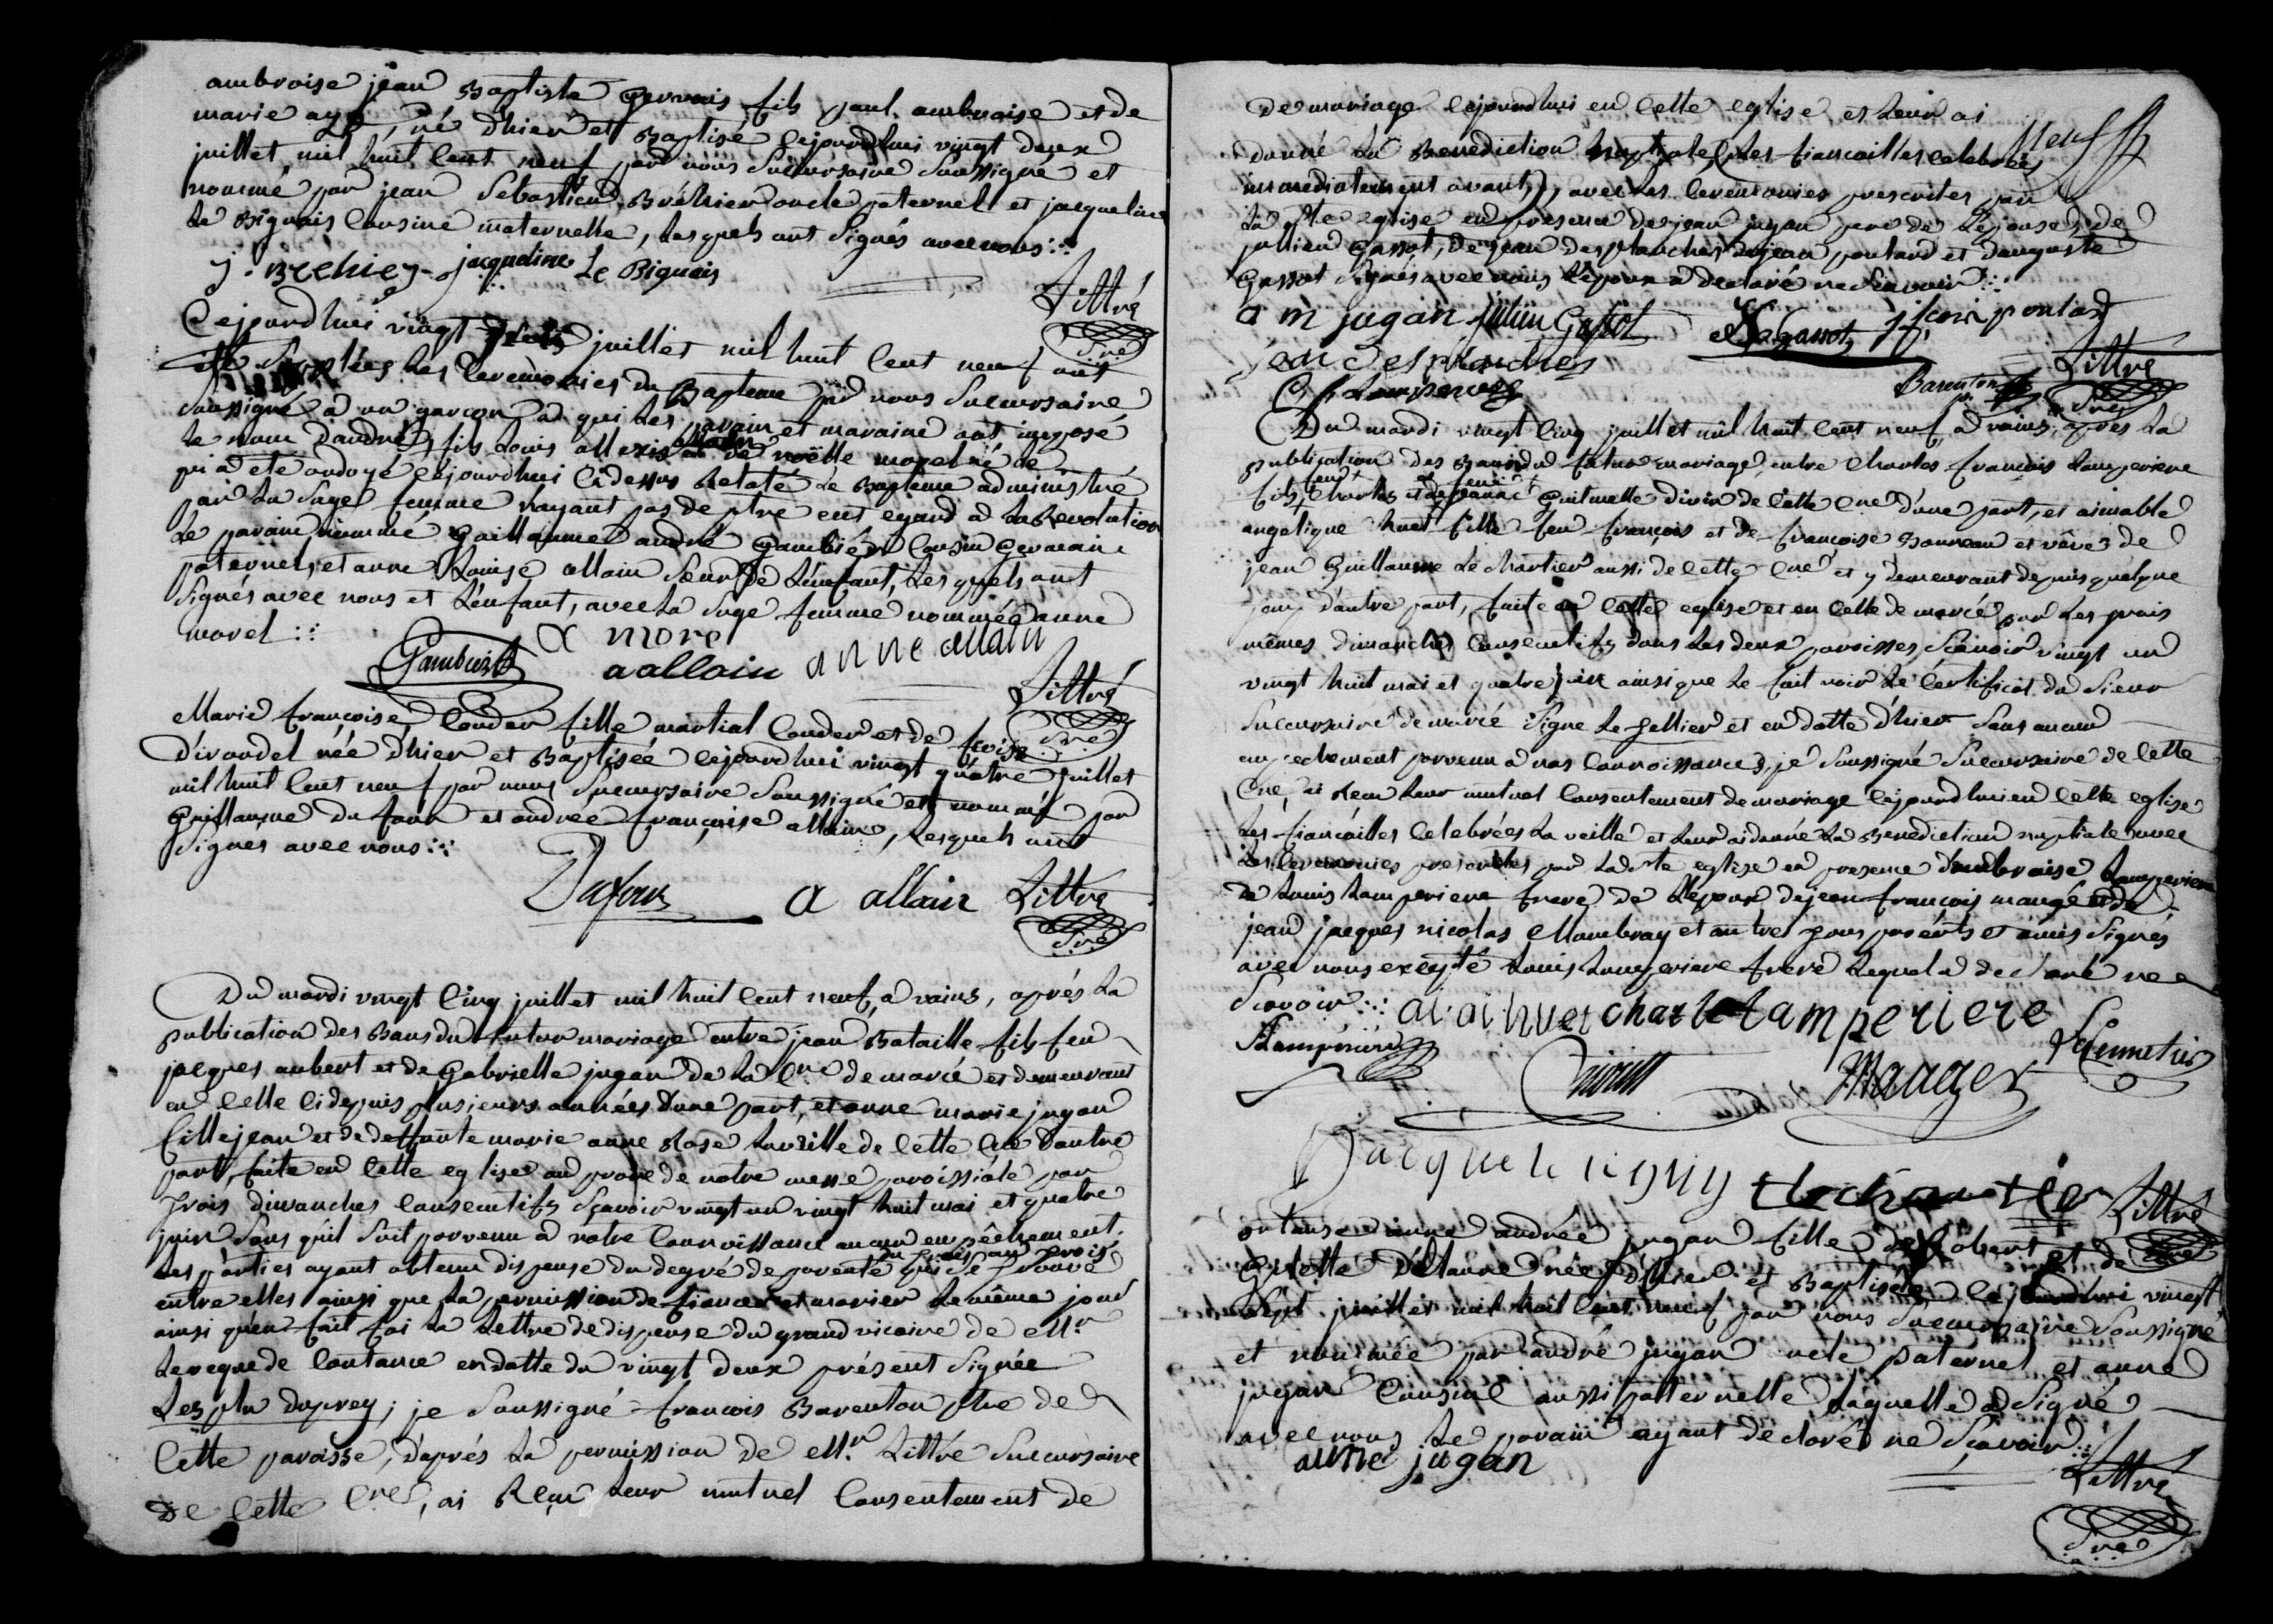 ambroise jean Baptiste Gervais fils paul ambroise et de
marie ayé, né d'hier et Baptisé cejourdhui vingt deux
juillet mil huit cent neuf par nous Sucursaire Soussigné et
nommé par jean Sebastien Bréhier oncle paternel et jacqueline
Le Biguais Cousine maternelle, Lesquels ont Signés avec nous :·:
j. Brehier jacqueline Le Biguais
Littré
Sre
Cejourdhui vingt juillet mil huit cent neuf ont
été Supplées Les Ceremonies du Baptême par nous Sucursaire
Soussigné a un garçon a qui Les parain et maraine ont imposé
Le nom d'andré, fils Louis allexis allain et de noëlle morel né de
qui a ete ondoyé cejourdhui Cidessus Relaté Le Baptême administré
par La Sage femme n'ayant pas de ptre eut egard a La Revolution
Le parain nommé Guillaume andré Gambier Cousin Germain
paternel, et anne Louise allain Sœur de L'enfant, Lesquels ont
Signés avec nous et L'enfant, avec La Sage femme nommée anne
morel :·:
a morel
Gambier a allain anne allain
Littré
Sre
Marie françoise Couder fille martial Couder et de fcoise
Divaudel née d'hier et Baptisée cejourdhui vingt quatre juillet
mil huit Cent neuf par nous Sucursaire Soussigné et nommée par
Guillaume Du four et andrée françoise allain, Lesquels ont
Signés avec nous :·:
Dufour a allain Littré
Sre
Du mardi vingt Cinq juillet mil huit Cent neuf, a vains, aprés La
publication des Bans du futur mariage entre jean Bataille fils feu
jacques aubert et de Gabrielle jugan de La Cne de marcé et demeurant
en Celle Ci depuis plusieurs années d'une part, et anne marie jugan
fille jean et de deffunte marie anne Rose Laville de Cette Cne d'autre
part, faite en Cette eglise au prone de notre messe paroissiale par
trois dimanches Consecutifs Sçavoir vingt un vingt huit mai et quatre
juin Sans qu'il Soit parvenu a notre Connoissance aucun empêchement.
Les parties ayant obtenu dispense du degré de parenté du trois au trois qui Se trouve
entre elles ainsi que La permission de fiancer et marier Le même jour
ainsi qu'en fait foi La Lettre de dispense du grand vicaire de Mr
Leveque de Coutance en datte du vingt deux présent Signée
Lesplu duprey ; je Soussigné françois Barenton ptre de
Cette paroisse, d'aprés La permission de Mr. Littré Sucursaire
De Cette Cne, ai Reçu Leur mutuel Consentement de
De mariage cejourdhui en Cette eglise et Leur ai
donné La Benediction nuptiale (Les fiancailles celebrées
immediatement avant), avec Les ceremonies prescrites par
La Ste eglise en presence de jean jugan pere de L'epouse, de
julien Gassot, de jean Desplanches de jean poulard et d'auguste
Gassot Signés avec nous L'epoux a declaré ne Scavoir :·:
a m jugan julien Gassot A. Gassot jean poulard
jean Desplanches Littré
Barenton
Sre
Du mardi vingt Cinq juillet mil huit Cent neuf, a vains, apres La
publication des Bans du futur mariage entre Charles françois Lamperiere
fils feu Charles et de feue jeanne Guilmette divoir de Cette Cne d'une part, et aimable
angelique huet fille feu françois et de françoise Bonneau et vêve de
jean Guillaume Le Chartier aussi de Cette Cne et y demeurant depuis quelque
jour d'autre part, faite en Cette eglise et en Celle de marcé par Les trois
mêmes dimanches Consecutifs dans Les deux paroisses, Sçavoir vingt un
vingt huit mai et quatre juin ainsi que Le fait voir Le Certificat du Sieur
Sucursaire de marcé Signe Le Sellier et en datte d'hier Sans aucun
empechement parvenu a nos Connoissances, je Soussigné Sucursaire de Cette
Cne, ai Recu Leur mutuel Consentement de mariage cejourdhui en Cette eglise
Les fiancailles Celebrées La veille et Leur ai donné La Benediction nuptiale avec
Les Ceremonies prescrites par La Ste eglise en presence d'ambroise Lamperiere
de Louis Lamperiere frere de L'epoux de jean françois maugé et de
jean jacques nicolas Mambray et autres tous parents et amis Signés
avec nous excepté Louis Lamperiere frere Lequel a declaré ne
Scavoir :·: ai ai huet charle lamperiere
Lampérière Mauger
Littré
Sre
anne andrée jugan fille de Robert et de
Delaune née d'hier et Baptisée cejourdhui vingt
Sept juillet mil huit Cent neuf par nous Sucursaire Soussigné
et nommée par andré jugan oncle paternel et anne
jugan Cousine aussi paternelle Laquelle a Signé
avec nous Le parain ayant declaré ne Sçavoir :·:
anne jugan
Littré
Sre